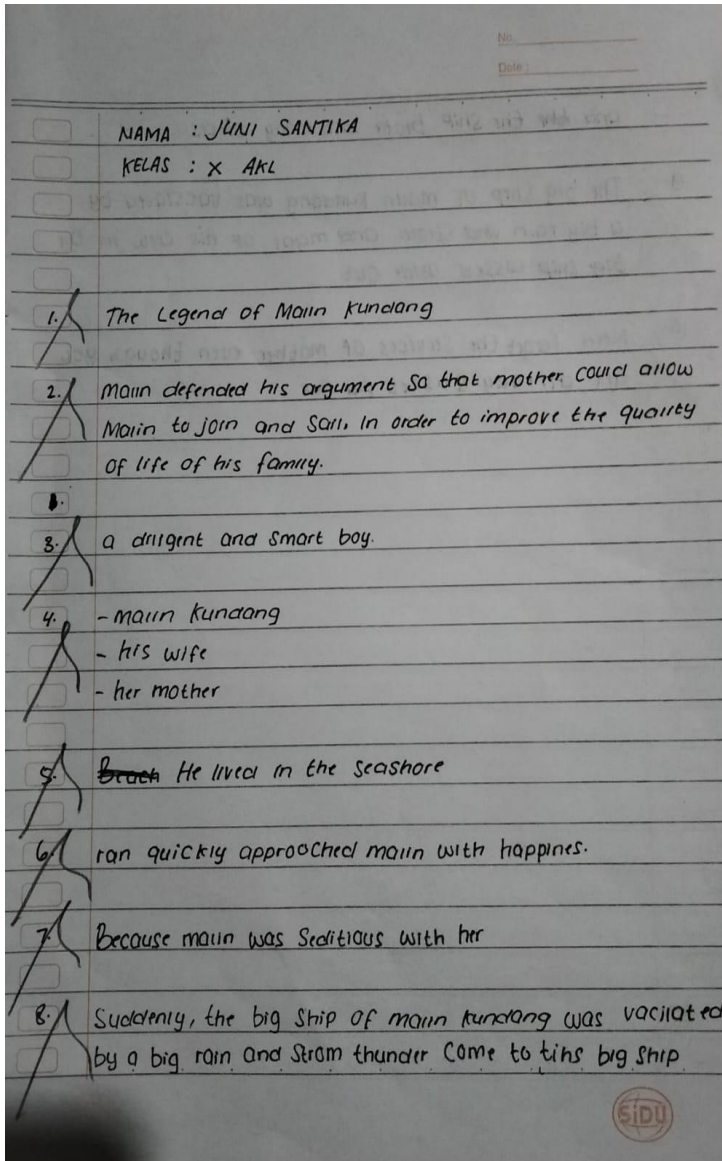 No.
Date :
NAMA : JUNI SANTIKA
KELAS : X AKL
1. The Legend of Malin Kundang
2. Malin defended his argument so that mother could allow
Malin to join and Sail, In order to improve the quality
of life of his family.
3. a diligent and smart boy.
4. - malin kundang
- his wife
- her mother
5. Beach He lived in the seashore
6. ran quickly approoched malin with happines.
7. Because malin was Seditious with her
8. Suddenly, the big ship of malin kundang was vacilated
by a big rain and Strom thunder Come to tihs big ship
SiDU